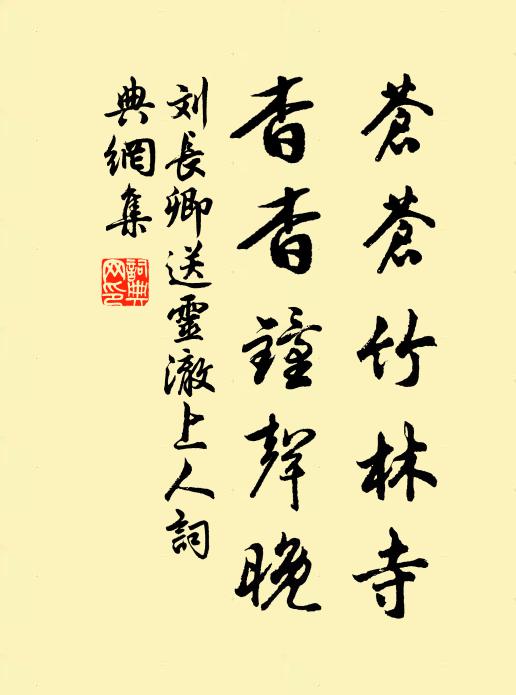 蒼蒼竹林寺
杳杳鐘聲晚
刘長卿送靈澈上人詞
典網集
詞典网印